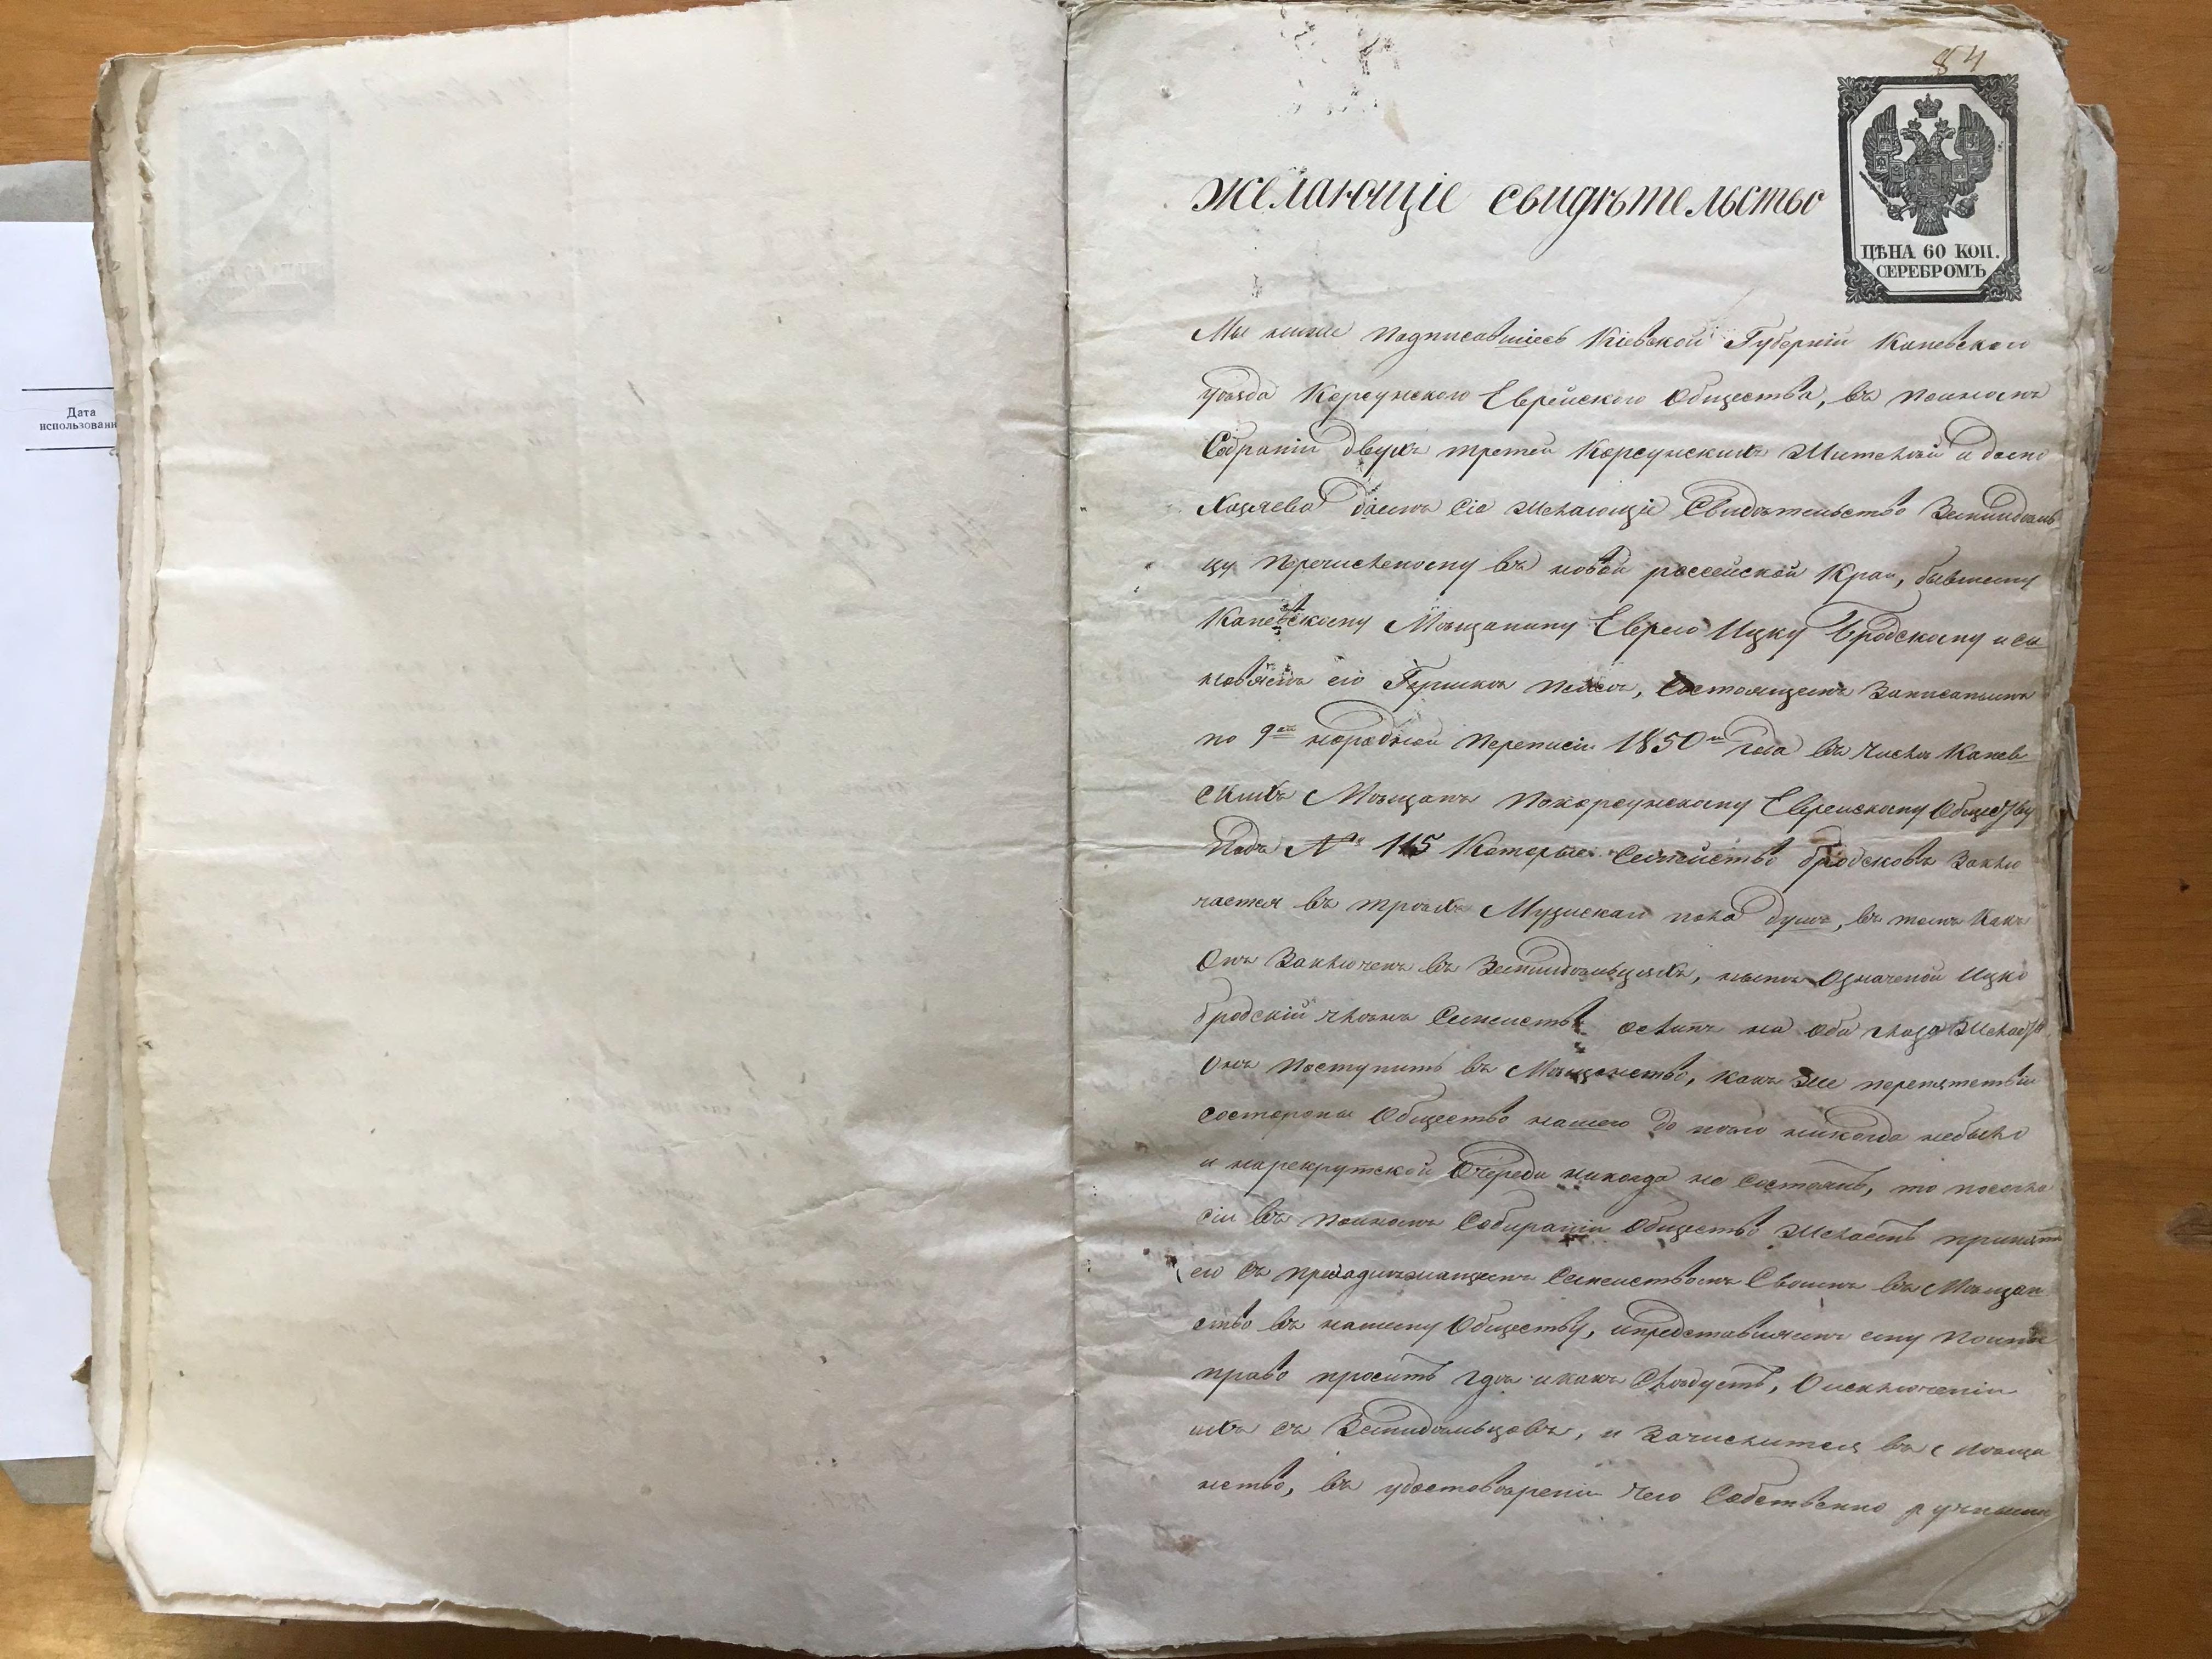 Дата
использован
84
желающіе свидѣтельство
ЦѢНА 60 КОП.
СЕРЕБРОМЪ
Мы ниже подписавшіесь Кіевской Губерніи Каневского
уѣзда Корсунского Еврейского Общества, въ полномъ
Собраніи двухъ третей Корсунскихъ Жителей и домо
Хозяево даемъ Сіе желающіе Свидѣтельство Земнидѣль
цу перечисленому въ новой россейской Край, бывшему
Каневскому Мѣщанину Еврею Ицку Бродскому и сы
новьямъ его Гершка, Состоящемъ Записанымъ
по 9ой народной переписи 1850го года въ числѣ Канев
скихъ Мѣщанъ покорсунскому Еврейскому Обществу
Подъ № 115 Которые Семейство бродсковъ Заклю
чается въ троихъ Музискаго пола душъ, въ томъ Какъ
Онъ Заключенъ въ Земнидѣльцахъ, нынѣ Означеной Ицко
бродскій членъ Семейства ослипъ на оба глаза Желаетъ
Онъ поступить въ Мѣщанство, какъ же перепятствіи
состороны Общество нашего до него никогда небыло
и нарекрутской Очереди никогда не Состоялъ, то
сіи въ полномъ Собираніи Общество Желаетъ принять
его съ Семействомъ Своимъ въ Мѣщан
ство въ нашему Обществу, ипредставляемъ ему
право просить гдѣ икакъ Слѣдуетъ, О исключеніи
ихъ съ Земнидѣльцовъ, и Зачислится въ Мѣща
нство, въ удостовѣреніи чего Собственно ручными